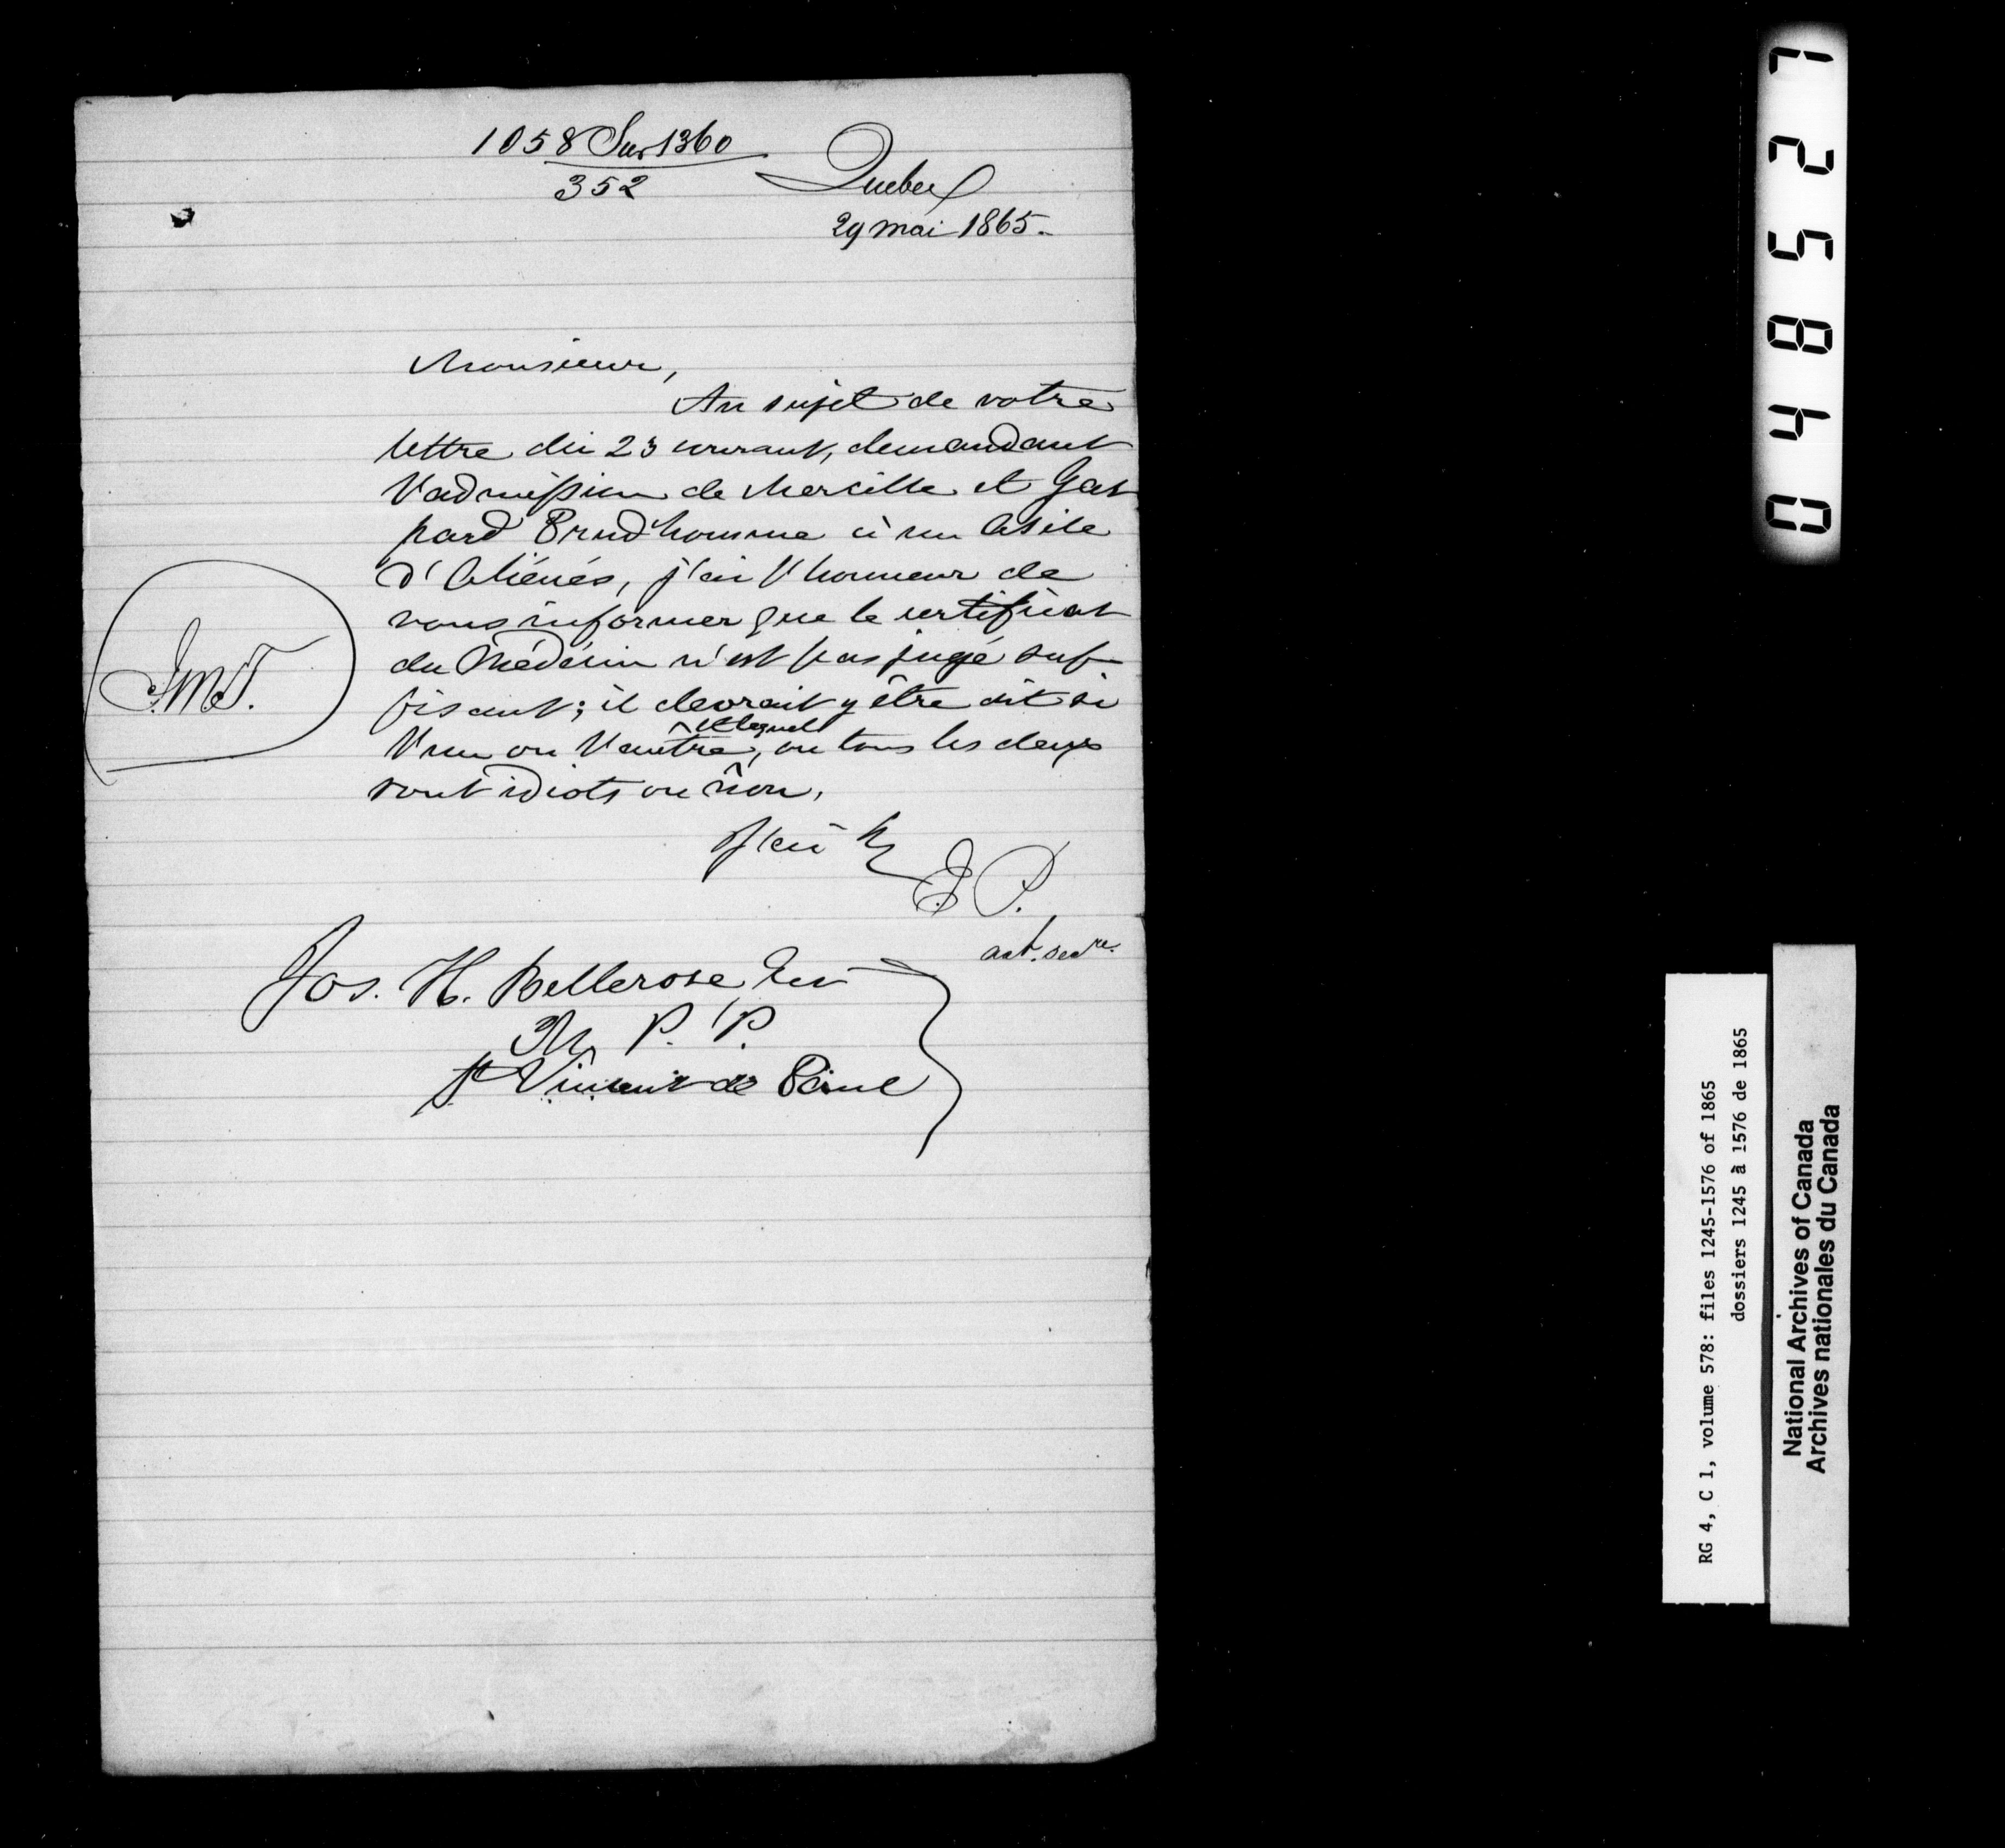 1058 Sur 1360
352
Quebec
29 mai 1865.
Monsieur,
Au sujet de votre
lettre du 23 courant, demandant
l'admission de Marcille et Gas
pard Prud'homme à un Asile
d'Aliénés, j'ai l'honneur de
vous informer que le certificat
du Médecin n'est pas jugé suf
fisant; il devrait y être dit si
l'un ou l'autre, et lequel, ou tous les deux
sont idiots ou non.
J'ai &
E. P.
ast. secre.
J.M.T.
Jos. H. Bellerose Ecr
M. P. P.
St Vincent de Paul
04852 7
RG 4, C 1, volume 578: files 1245-1576 of 1865
dossiers 1245 à 1576 de 1865
National Archives of Canada
Archives nationales du Canada